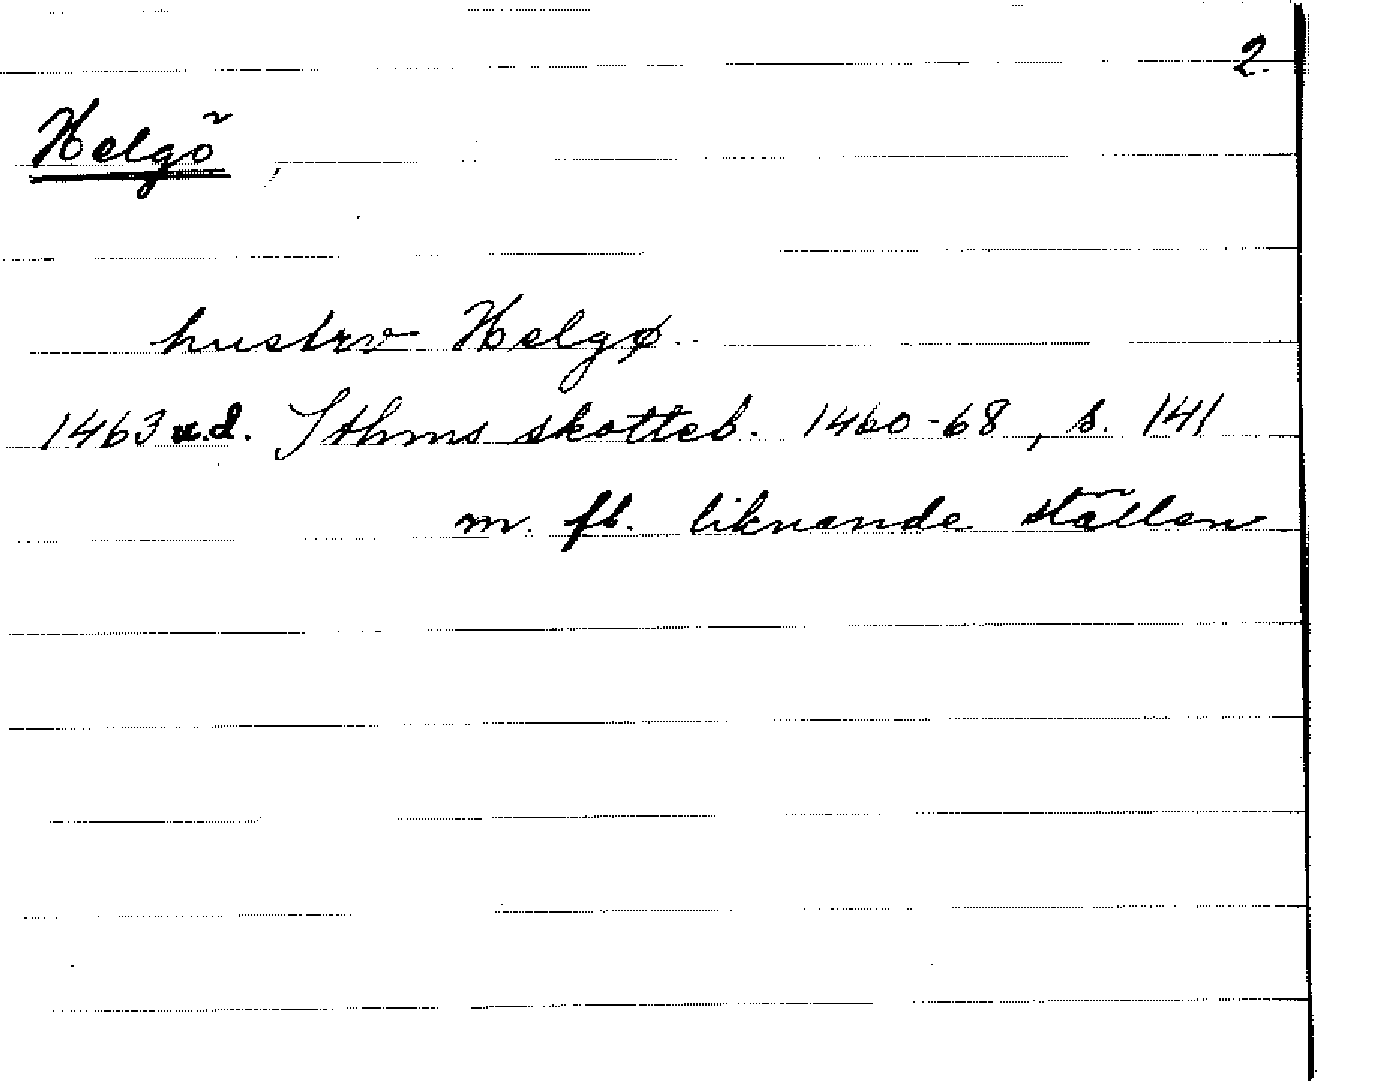 2.
Helgö,
hustrv Helgø.
1463 u.d. Sthms skotteb. 1460-68, s. 141
m. fl. liknande ställen